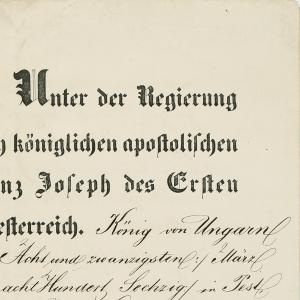 Unter der Regierung
königlichen apostolischen
Joseph des Ersten
König von Ungarn
Acht und zwanzigsten März
Hundert Sechzig in Pest